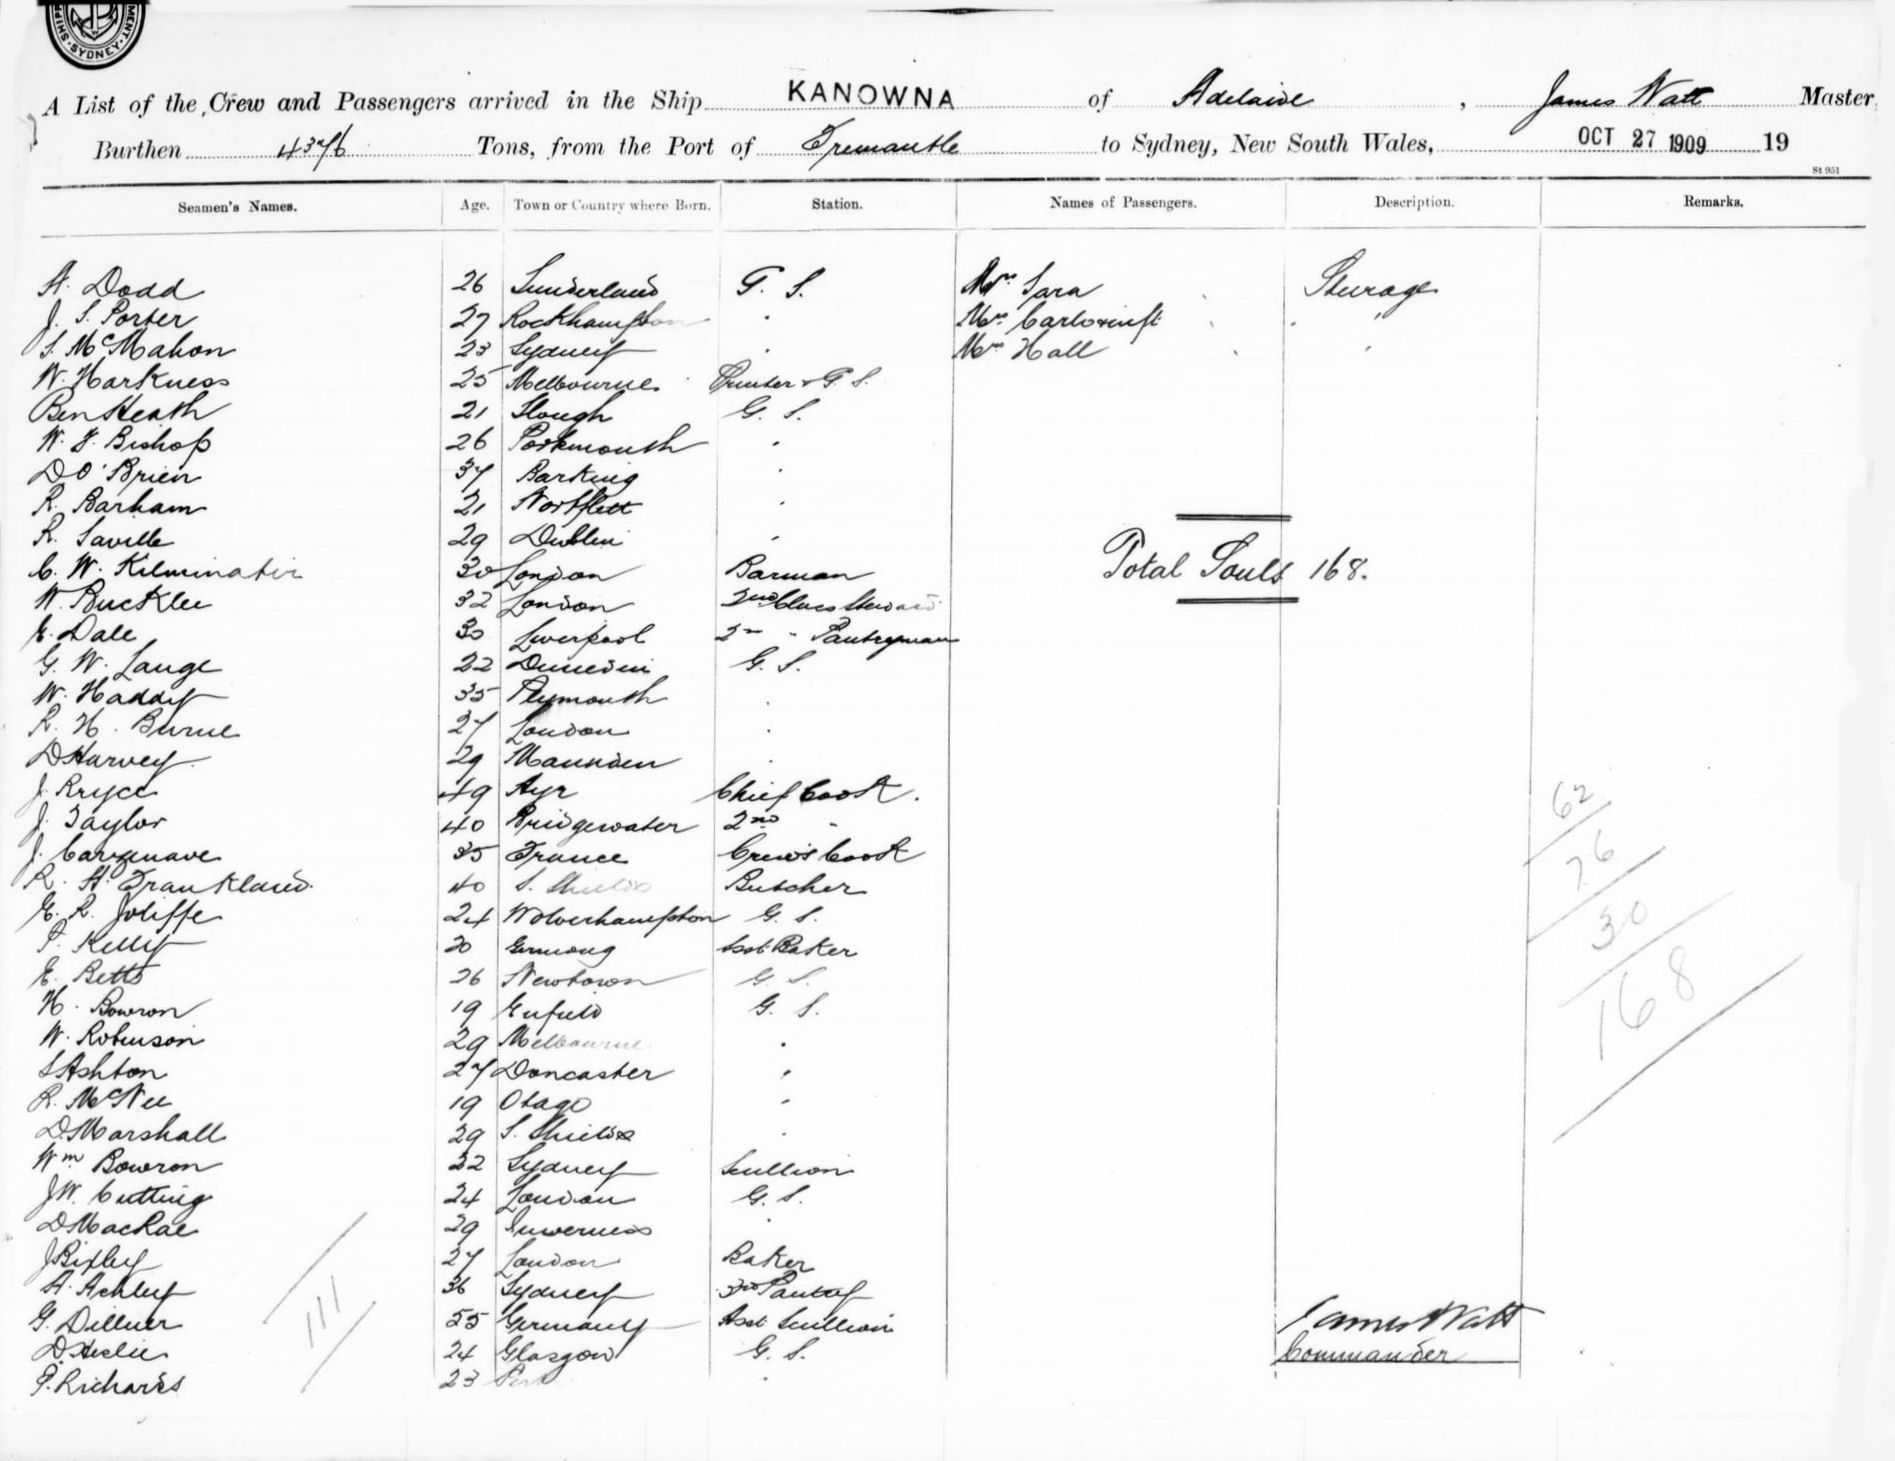 SHIP MENT SYDNEY
A List of the Crew and Passengers arrived in the Ship KANOWNA of Adelaide, James Watt Master
Burthen Tons, from the Port of Fremantle to Sydney, New South Wales, OCT 27 1909 19
St 951
Seamen's Names. Age. Town or Country where Born. Station. Names of Passengers. Description. Remarks.
A. Dodd 26 Sunderland G. S. Mrs Sara Steerage
J. S. Porter 27 Rockhampton " Mrs " "
S. McMahon 23 Sydney " Mrs Hall " "
W. Harkness 25 Melbourne Printer & G. S.
Ben Heath 21 Slough G. S.
W. F. Bishop 26 Portsmouth "
D O'Brien 37 Barking "
R. Barham 21 Northfleet "
R. Saville 29 Dublin "
Total Souls 168.
C. W. Kilminster 30 London Barman
W. Bucklee 32 London 2nd Class Steward
E. Dale 30 Liverpool 2nd " Pantryman
G. W. Lange 22 Dunedin G. S.
W. Haddy 35 Plymouth "
R. H. Burne 27 London "
D Harvey 29 "
J. Bryce 49 Ayr Chief Cook.
J. Taylor 40 Bridgewater 2nd "
J. 35 France Crew's Cook
R. A. Frankland. 40 S. Shields Butcher
E. R. Joliffe 24 Wolverhampton G. S.
P. Kelly 20 Asst Baker
E. Betts 26 Newtown G. S.
H. Bowron 19 Enfield G. S.
W. Robinson 29 Melbourne "
S Ashton 27 Doncaster "
R. McNee 19 Otago "
D. Marshall 29 S. Shields "
Wm Bowron 22 Sydney Scullion
J W. Cutting 24 London G. S.
D MacRae 29 Inverness "
J Bixley 27 London Baker
A. Ackley 36 Sydney 3rd Pantry
G. Dillner 55 Germany Asst Scullion
D. Leslie 24 Glasgow G. S.
P. Richards 23 "
111
62
76
30
168
James Watt
Commander